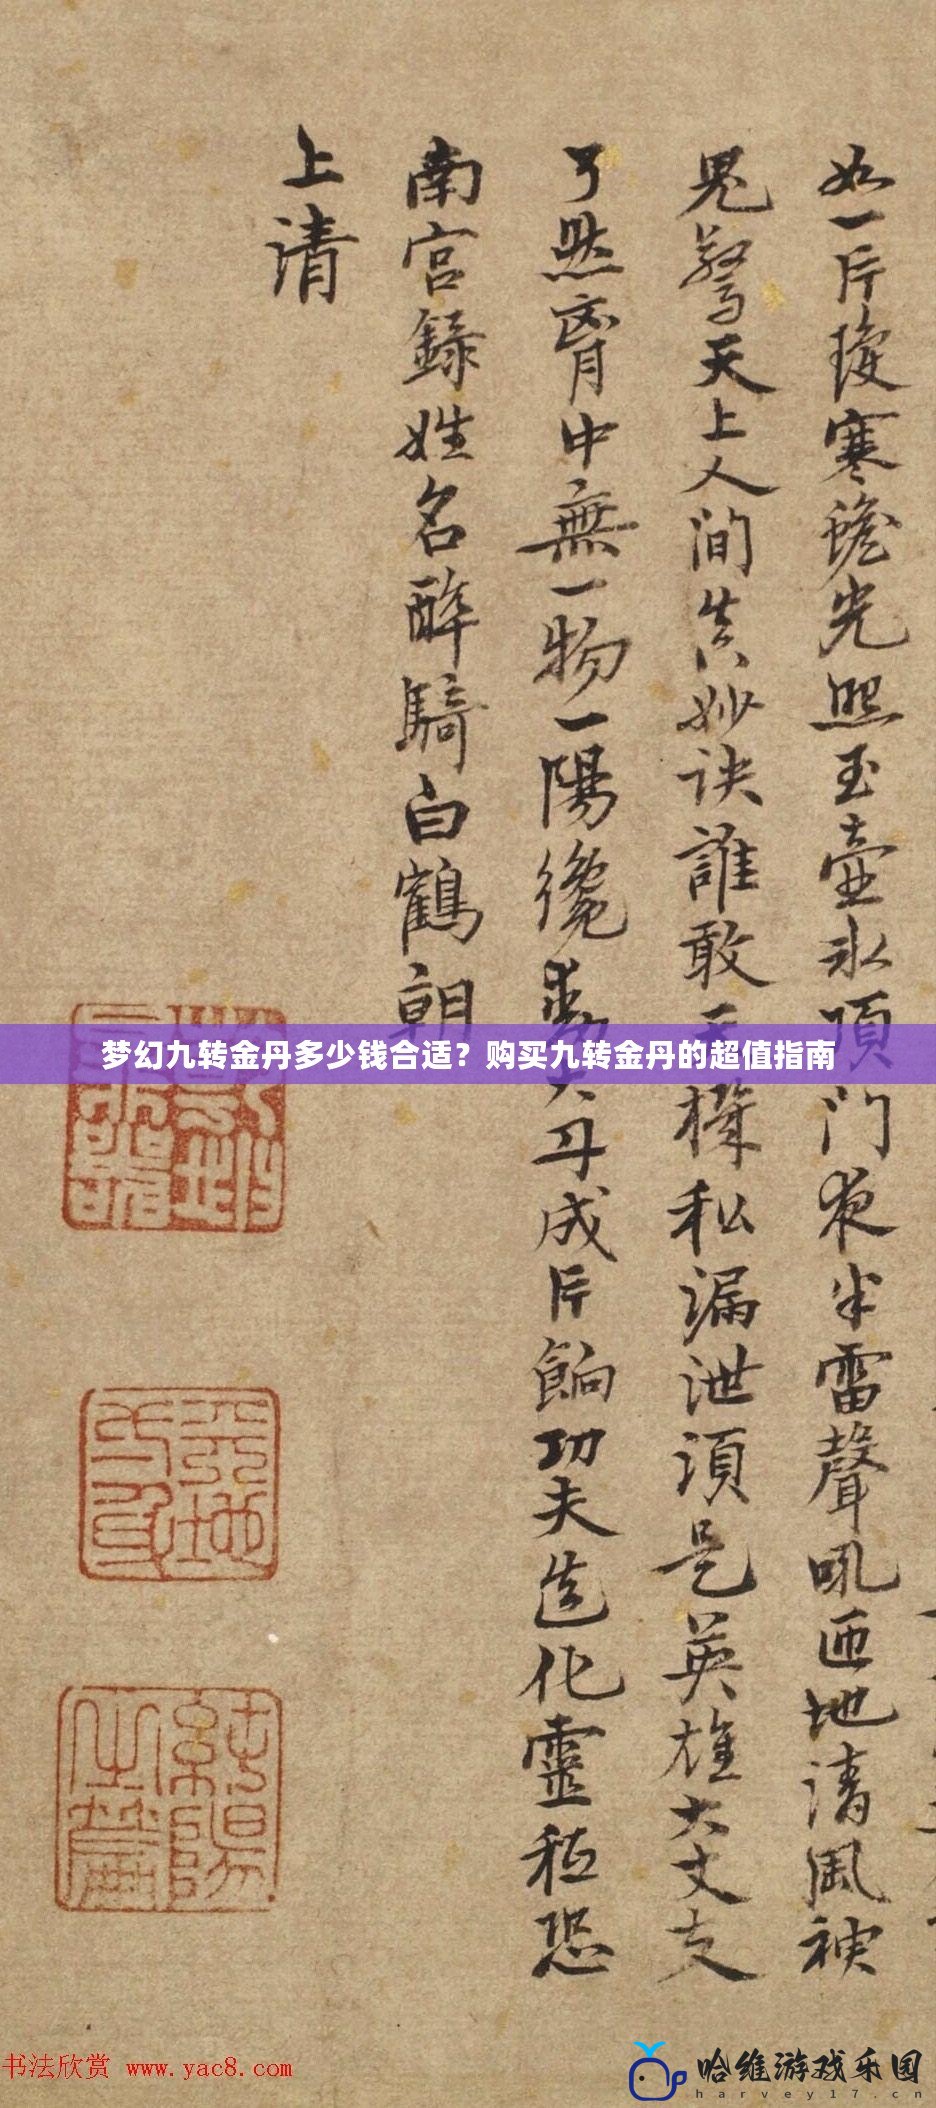 如一片瓊寒蟾光照玉壺冰頂門夜半雷聲吼匝地清風神
鬼驚天上人间真妙訣誰敢天機私漏泄須是英雄大丈夫
了然胷中無一物一陽纔動大丹成片餉功夫造化靈秪恐
南宮錄姓名醉騎白鶴朝
上清
梦幻九转金丹多少钱合适？购买九转金丹的超值指南
純陽
书法欣赏 www.yac8.com
哈维游戏乐园
harvey17.cn